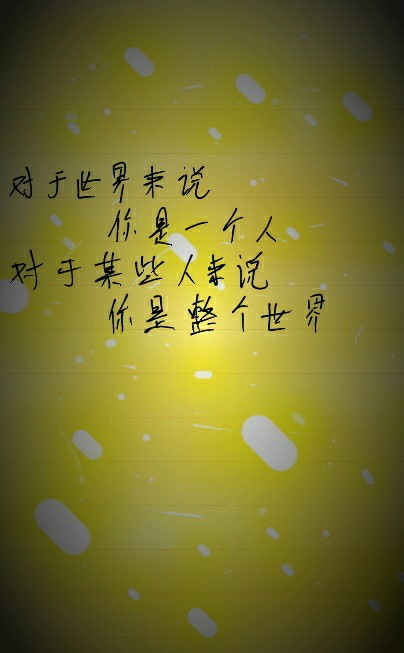 对于世界来说
你是一个人
对于某些人来说
你是整个世界